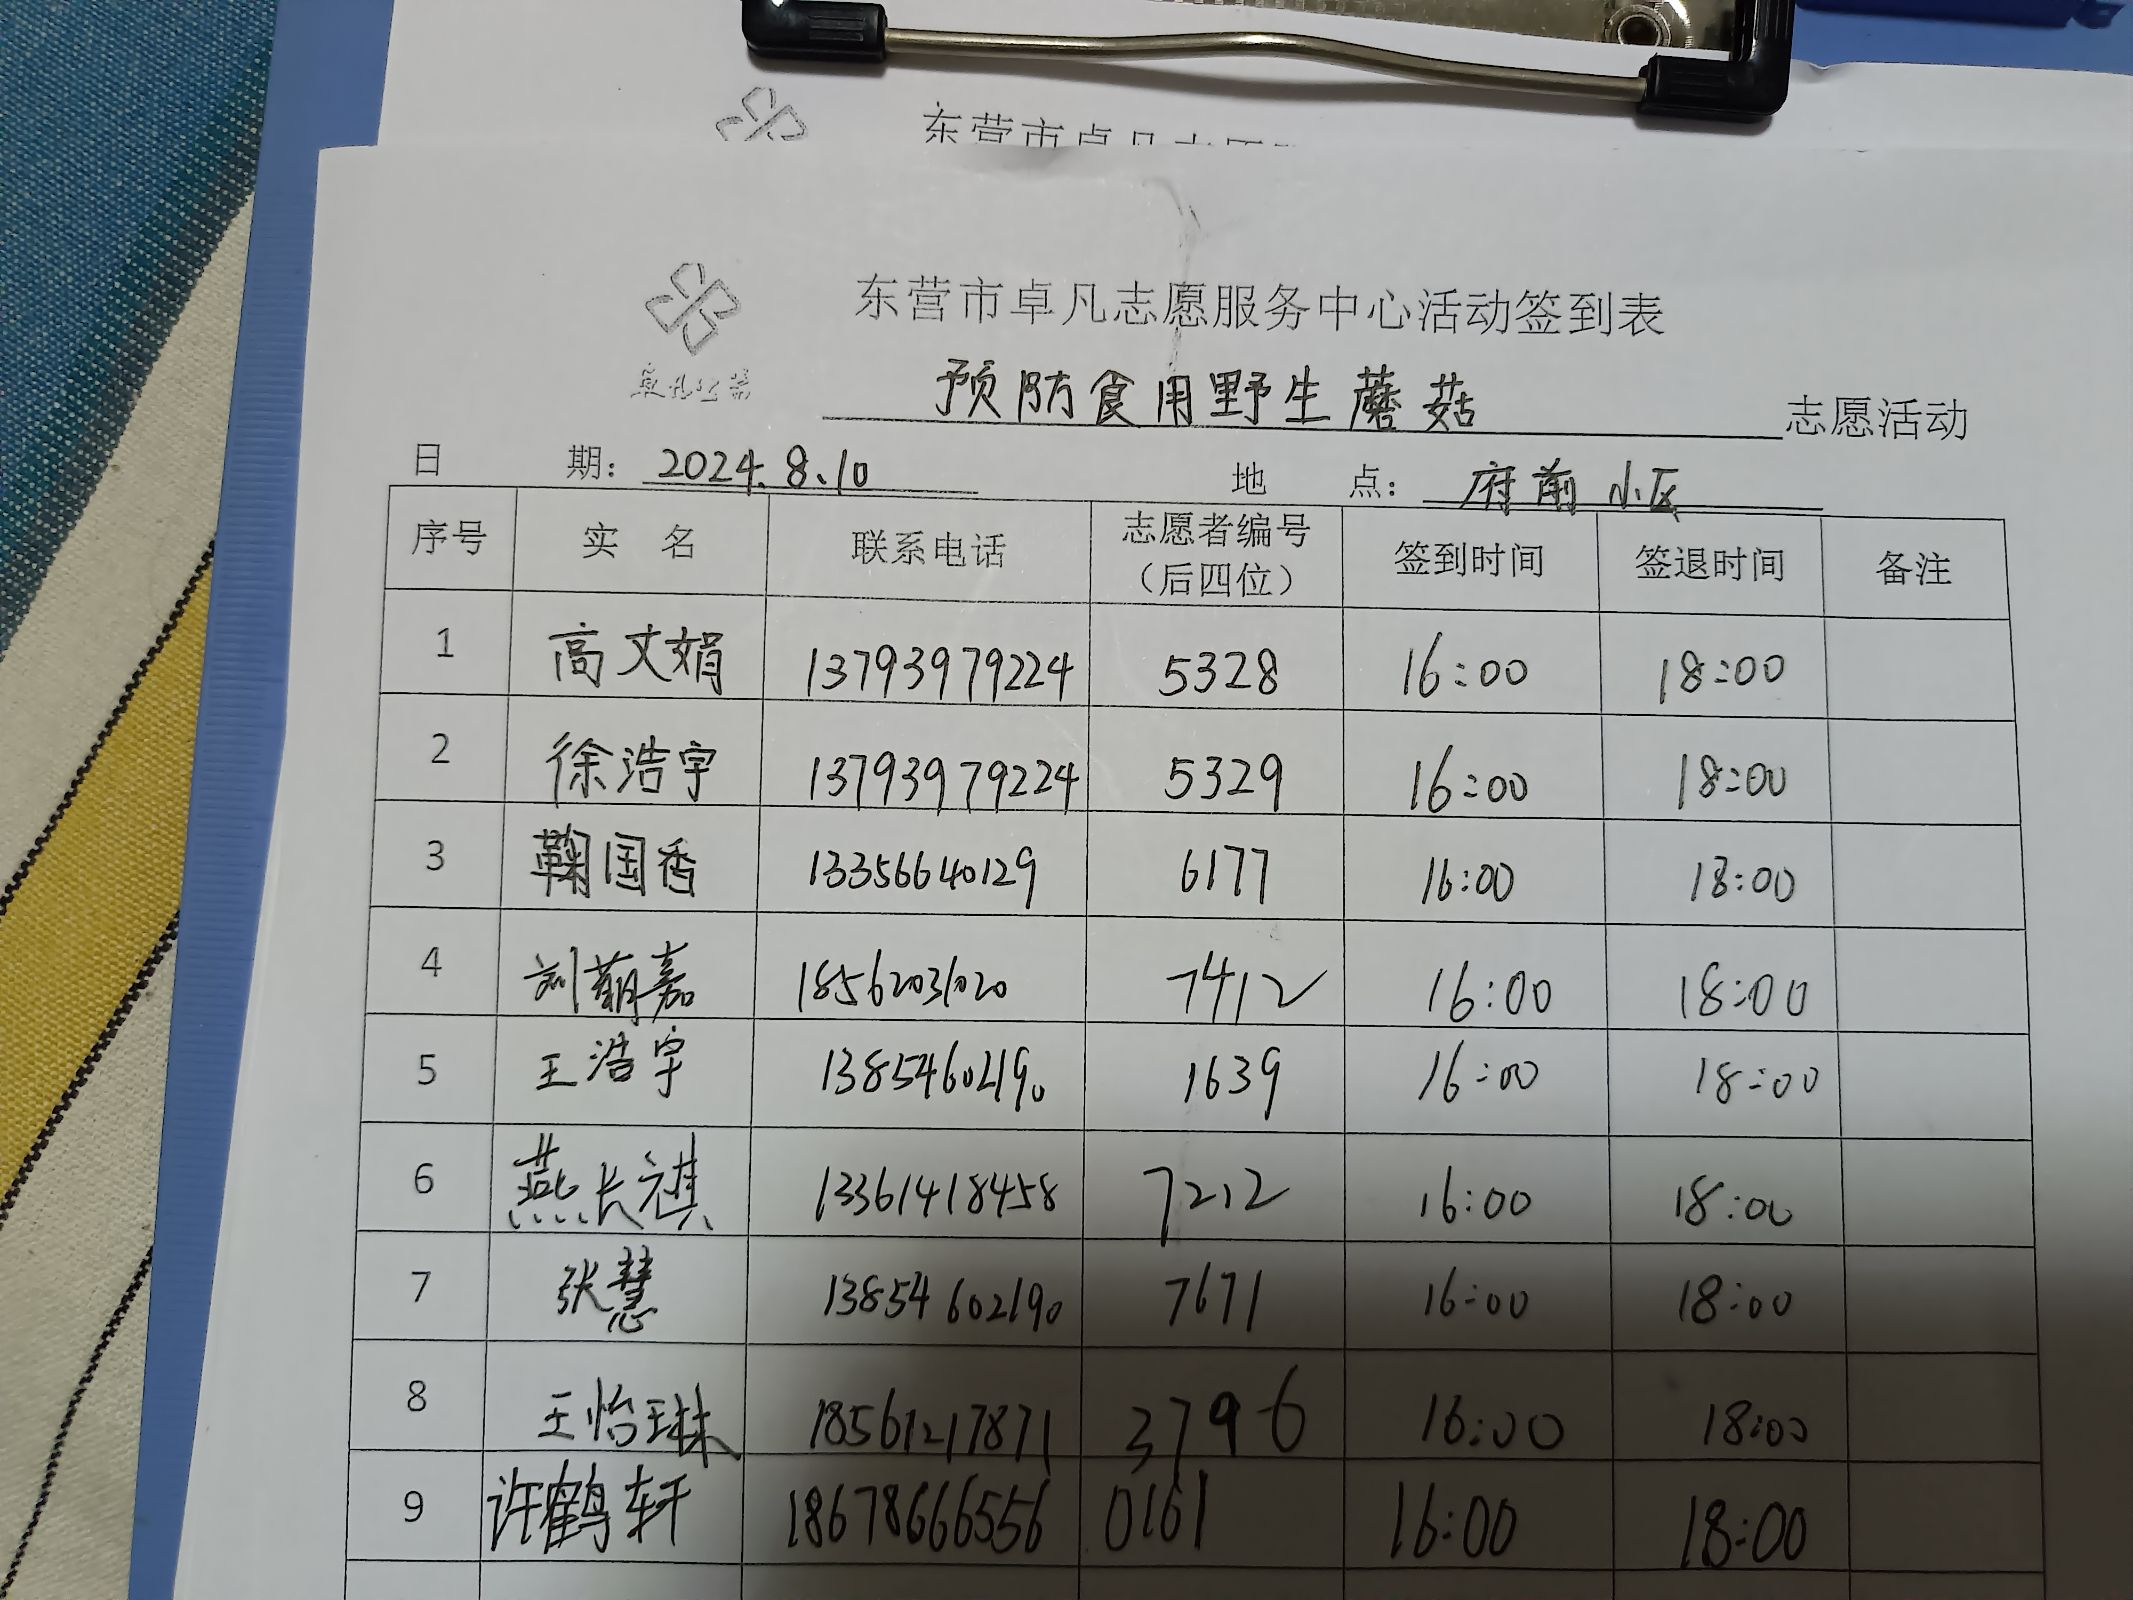 东营市卓凡志愿
东营市卓凡志愿服务中心活动签到表
卓凡公益
预防食用野生蘑菇 志愿活动
日 期: 2024.8.10 地 点: 府前小区
序号 实 名 联系电话 志愿者编号（后四位） 签到时间 签退时间 备注
1 高文娟 13793979224 5328 16:00 18:00
2 徐浩宇 13793979224 5329 16:00 18:00
3 鞠国香 13356640129 6177 16:00 18:00
4 刘萌嘉 18562031020 7412 16:00 18:00
5 王浩宇 13854602190 1639 16:00 18:00
6 燕长祺 13361418458 7212 16:00 18:00
7 张慧 13854602190 7671 16:00 18:00
8 王怡琳 18561217871 3796 16:00 18:00
9 许鹤轩 18678666556 0161 16:00 18:00